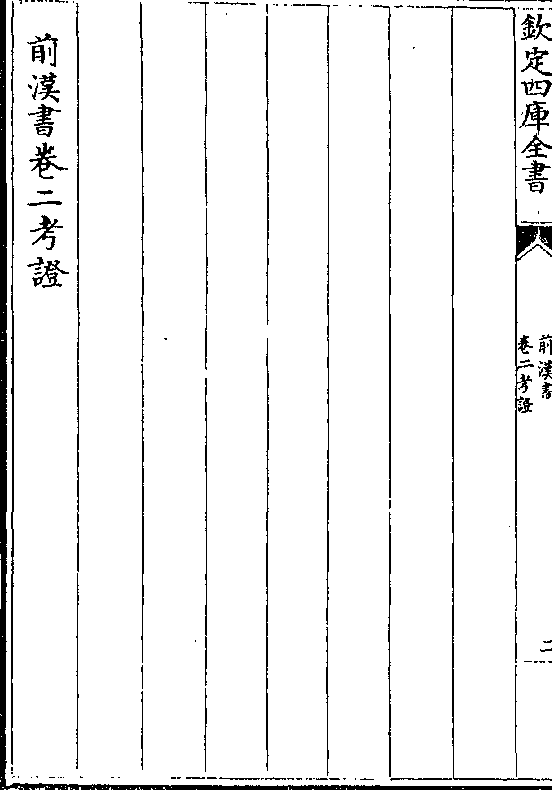 欽定四庫全書
前漢書
卷二考證
二
前漢書卷二考證